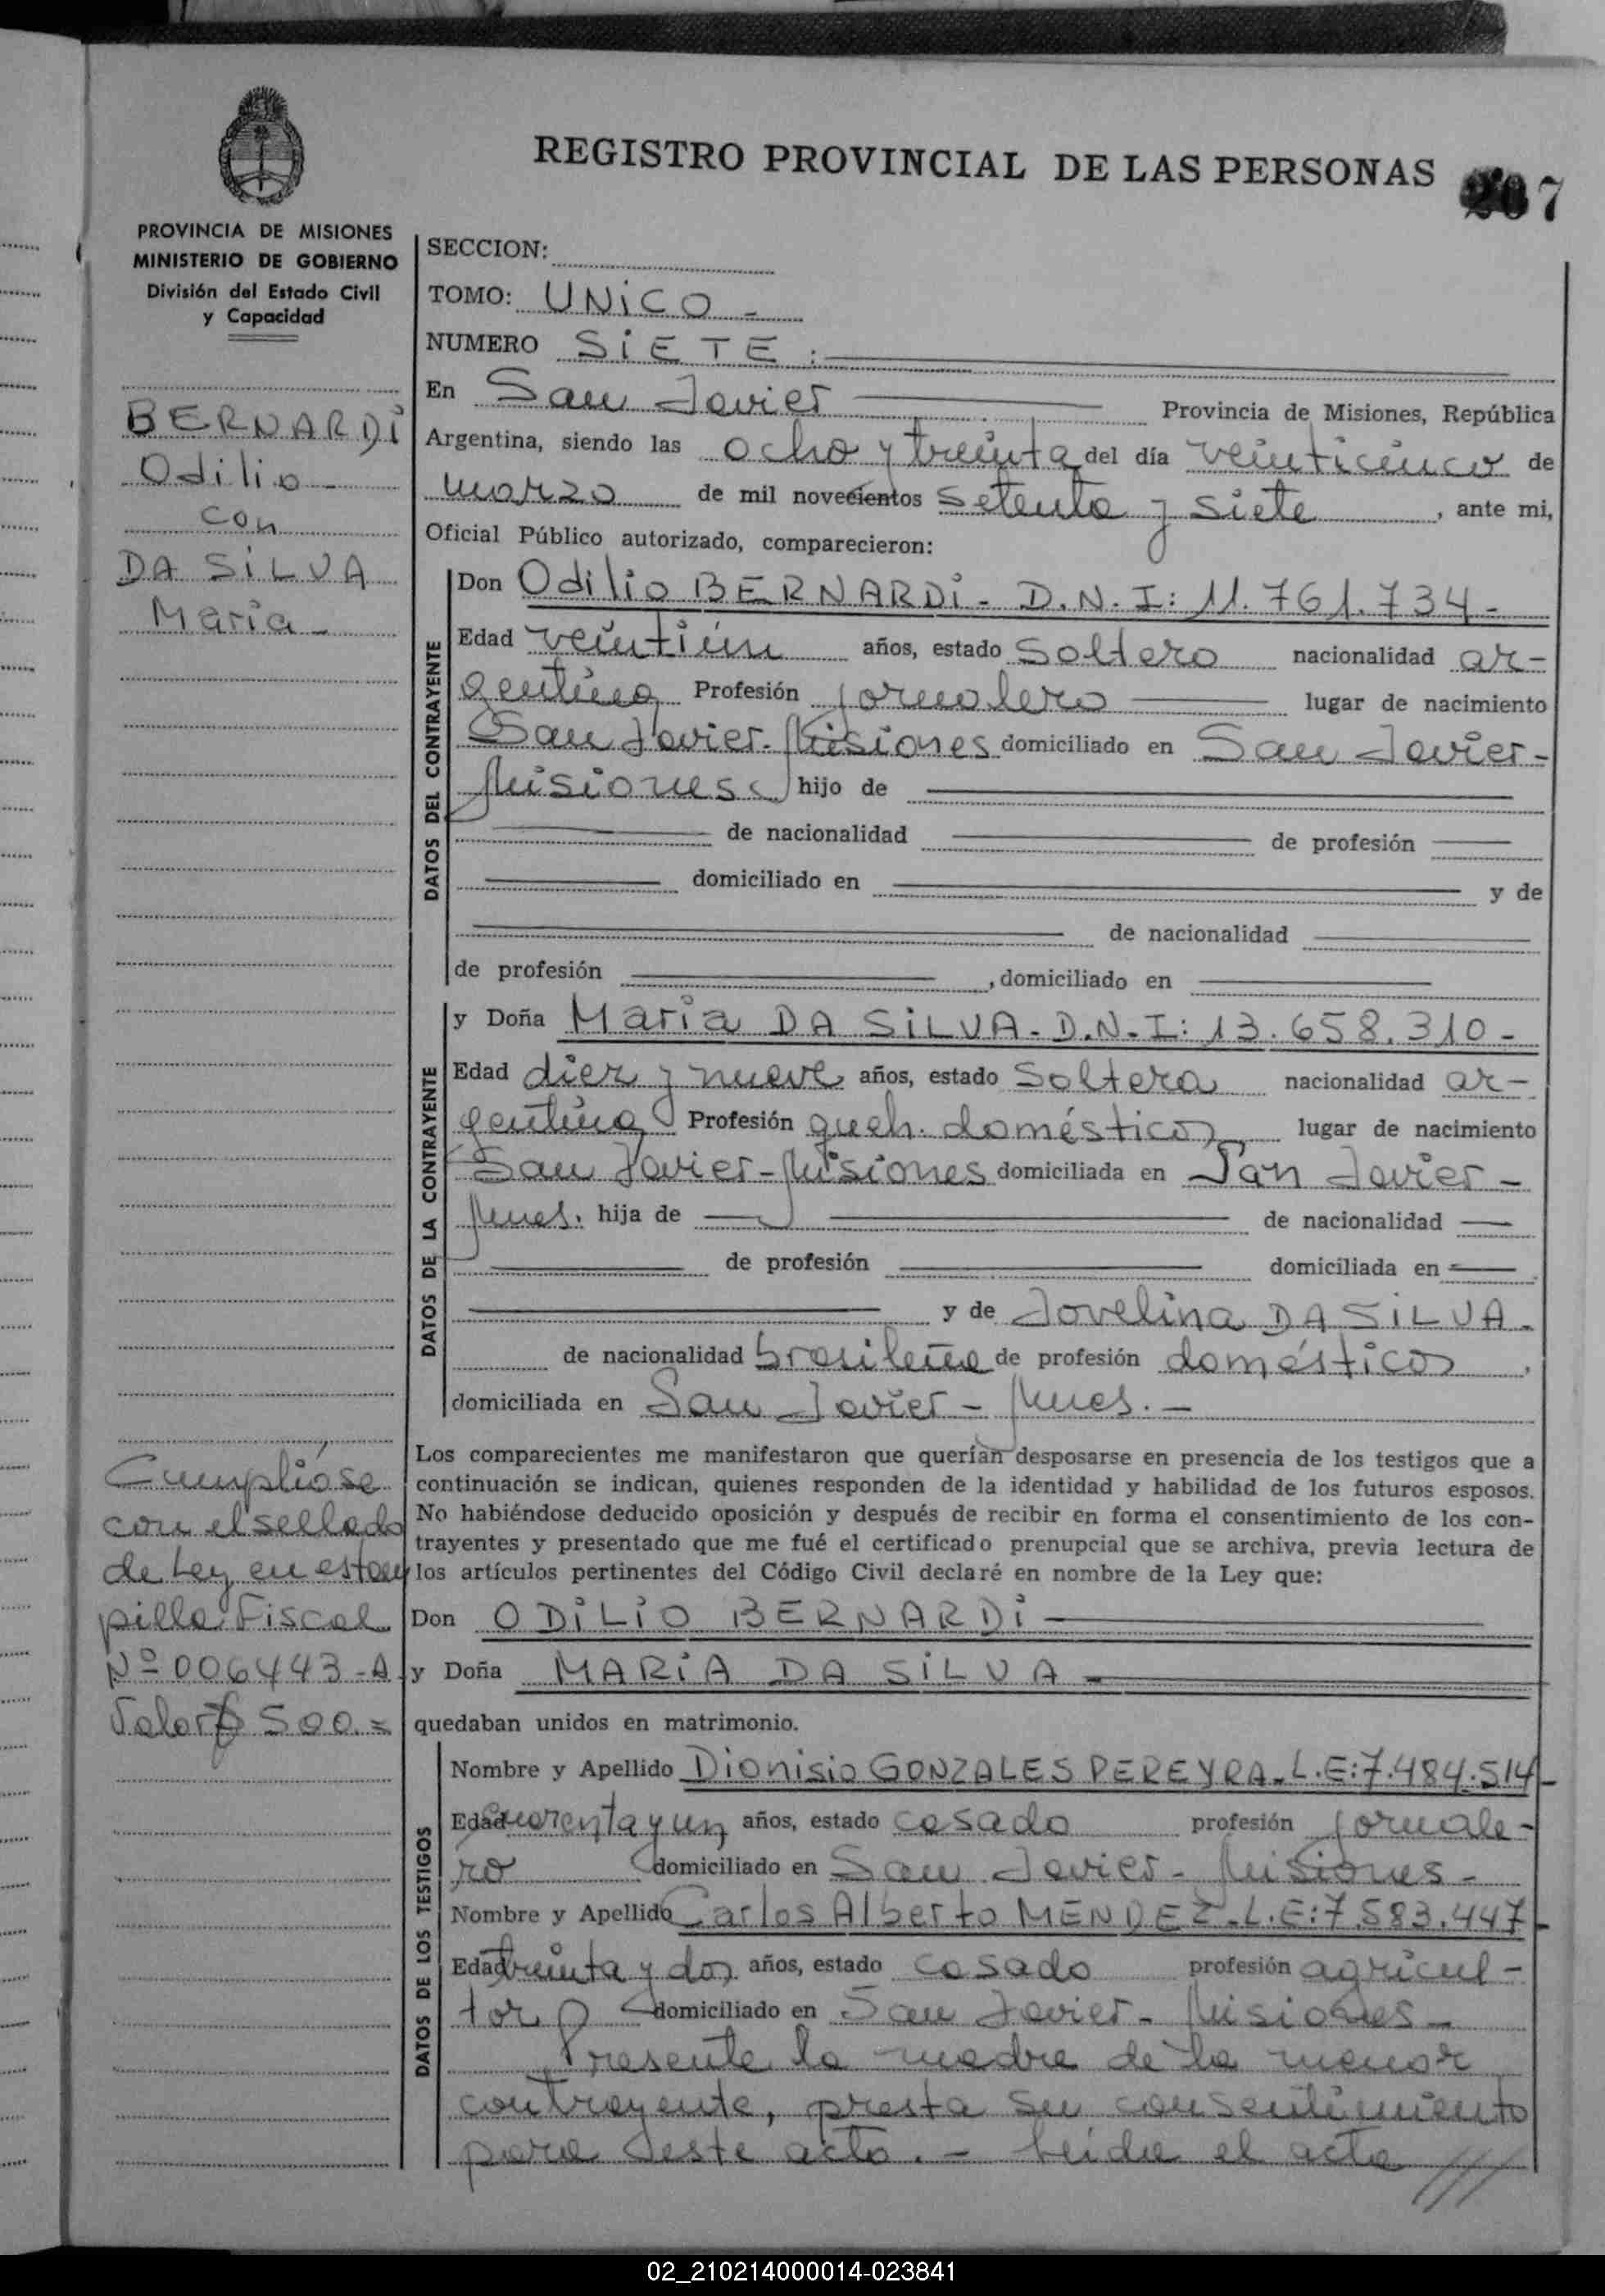 REGISTRO PROVINCIAL DE LAS PERSONAS
7
PROVINCIA DE MISIONES
MINISTERIO DE GOBIERNO
División del Estado Civil
y Capacidad
BERNARDI
Odilio
con
DA SILVA
Maria-
Cumplióse
con el sellado
de Ley en estam
pilla Fiscal
Nº 006443-A
Valor $ 500.=
SECCION:
TOMO: UNICO-
NUMERO SIETE:
En San Javier Provincia de Misiones, República
Argentina, siendo las ocho y treinta del día veinticinco de
marzo de mil novecientos setenta y siete, ante mi,
Oficial Público autorizado, comparecieron:
DATOS DEL CONTRAYENTE
Don Odilio BERNARDI- D.N.I: 11.761.734-
Edad veintiún años, estado soltero nacionalidad ar-
gentina Profesión jornalero lugar de nacimiento
San Javier-Misiones domiciliado en San Javier-
Misiones hijo de
de nacionalidad de profesión
domiciliado en y de
de nacionalidad
de profesión , domiciliado en
DATOS DE LA CONTRAYENTE
y Doña Maria DA SILVA-D.N.I: 13.658.310-
Edad diez y nueve años, estado soltera nacionalidad ar-
gentina Profesión queh. domésticos lugar de nacimiento
San Javier-Misiones domiciliada en San Javier-
Mnes. hija de de nacionalidad
de profesión domiciliada en
y de Jovelina DA SILVA-
de nacionalidad brasileña de profesión domésticos,
domiciliada en San Javier-Mnes.-
Los comparecientes me manifestaron que querían desposarse en presencia de los testigos que a
continuación se indican, quienes responden de la identidad y habilidad de los futuros esposos.
No habiéndose deducido oposición y después de recibir en forma el consentimiento de los con-
trayentes y presentado que me fué el certificado prenupcial que se archiva, previa lectura de
los artículos pertinentes del Código Civil declaré en nombre de la Ley que:
Don ODILIO BERNARDI
y Doña MARIA DA SILVA-
quedaban unidos en matrimonio.
DATOS DE LOS TESTIGOS
Nombre y Apellido Dionisio GONZALES PEREYRA-L.E:7.484.514-
Edad cuarenta y un años, estado casado profesión jornale-
ro domiciliado en San Javier-Misiones-
Nombre y Apellido Carlos Alberto MENDEZ-L.E:7.583.447-
Edad treinta y dos años, estado casado profesión agricul-
tor domiciliado en San Javier-Misiones-
Presente la madre de la menor
contrayente, presta su consentimiento
para este acto.- Leida el acta ///
02_210214000014-023841